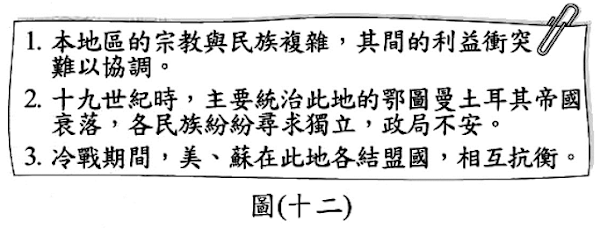 1. 本地區的宗教與民族複雜，其間的利益衝突
難以協調。
2. 十九世紀時，主要統治此地的鄂圖曼土耳其帝國
衰落，各民族紛紛尋求獨立，政局不安。
3. 冷戰期間，美、蘇在此地各結盟國，相互抗衡。
圖(十二)